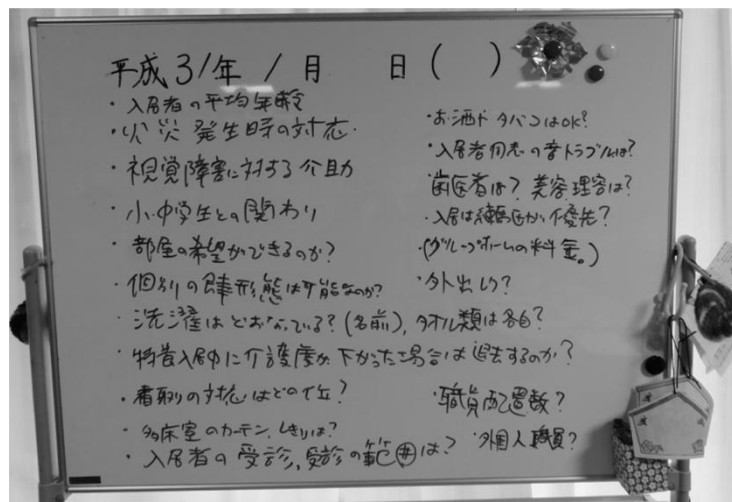 平成31年 1月　　日(　　)
・入居者の平均年齢
・火災発生時の対応
・視覚障害に対する介助
・小中学生との関わり
・部屋の希望ができるのか?
・個別の食事形態は可能なのか?
・洗濯はどおなっている?(名前), タオル類は各自?
・特養入居中に介護度が下がった場合は退去するのか?
・看取りの対応はどの位?
・多床室のカーテン, しきりは?
・入居者の受診, 受診の範囲は?
・お酒やタバコはOK?
・入居者同志の音トラブルは?
歯医者は? 美容理容は?
・入居は練馬区が優先?
・(グループホームの料金。)
・外出レク?
・職員配置数?
・外国人職員?